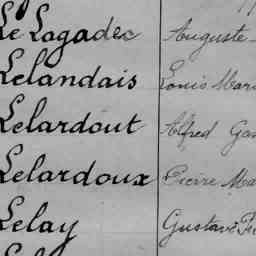 Le Lagadec Auguste
Lelandais Louis Mari
Lelardout Alfred Gas
Lelardoux Pierre Ma
Lelay Gustave